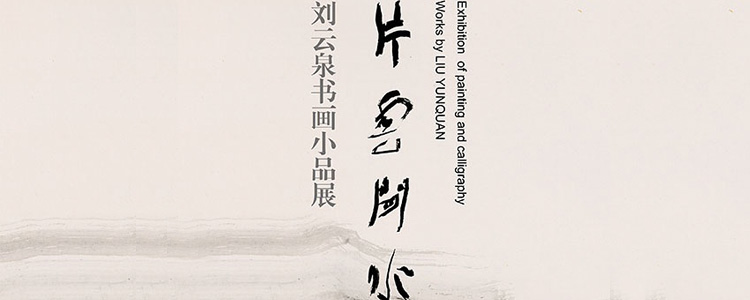 Exhibition of painting and calligraphy
Works by LIU YUNQUAN
片雲閒水
刘云泉书画小品展